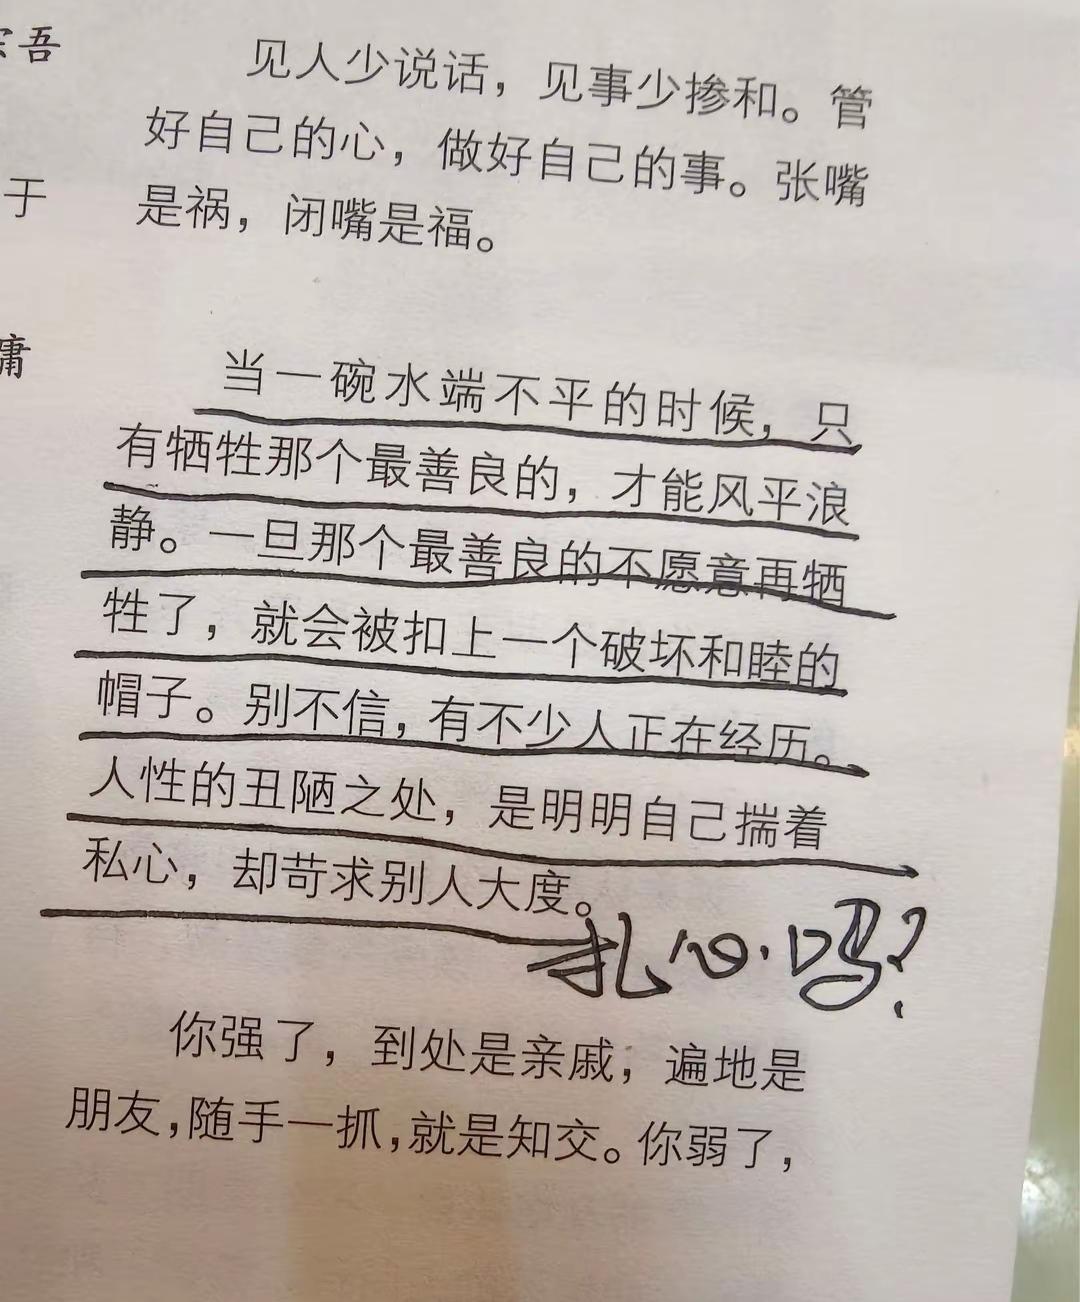 宗吾
于
庸
见人少说话，见事少掺和。管
好自己的心，做好自己的事。张嘴
是祸，闭嘴是福。
当一碗水端不平的时候，只
有牺牲那个最善良的，才能风平浪
静。一旦那个最善良的不愿意再牺
牲了，就会被扣上一个破坏和睦的
帽子。别不信，有不少人正在经历。
人性的丑陋之处，是明明自己揣着
私心，却苛求别人大度。
扎心吗？
你强了，到处是亲戚，遍地是
朋友，随手一抓，就是知交。你弱了，